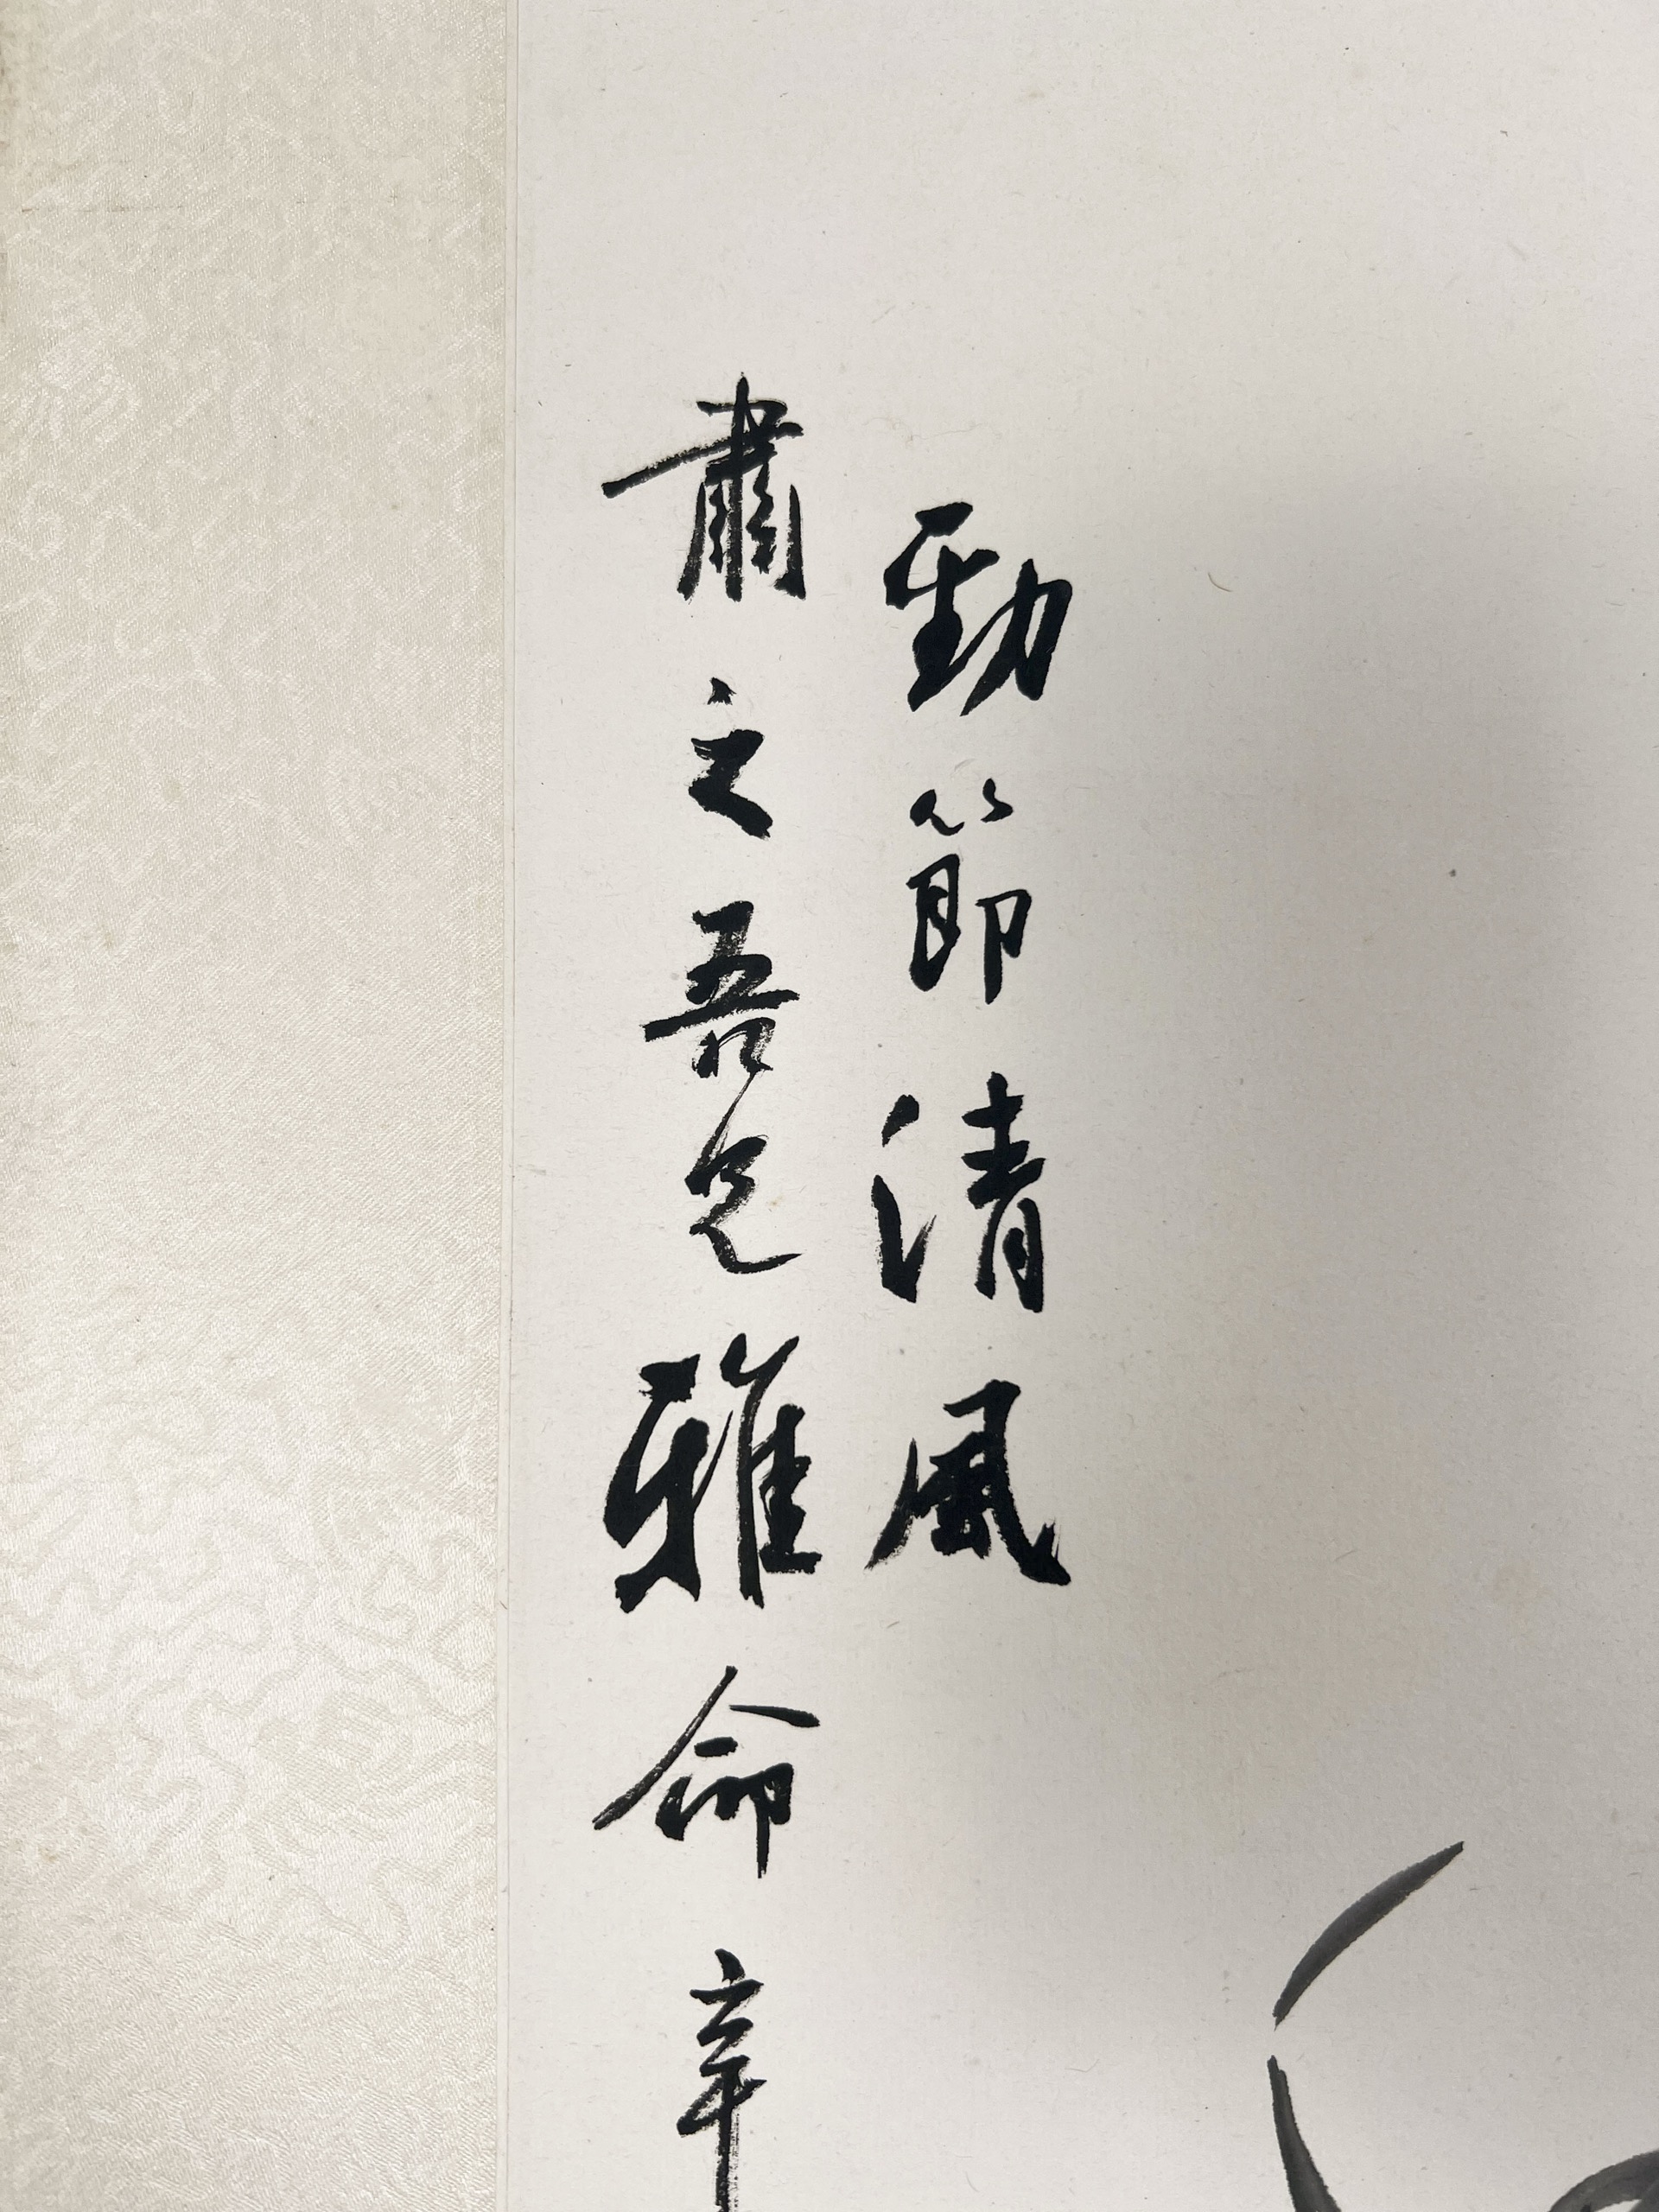 勁節清風
肅之吾兄雅命辛